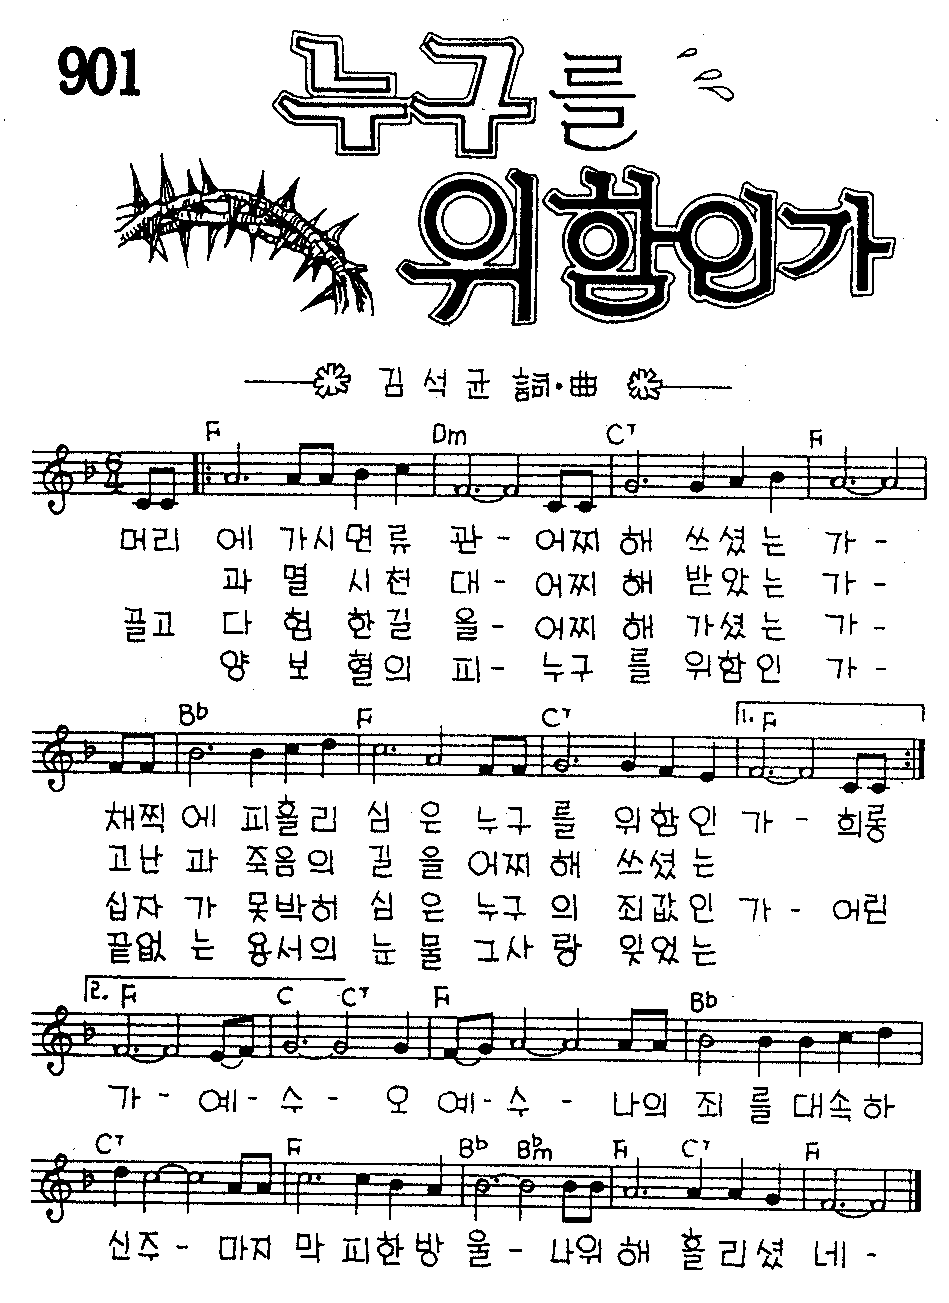 901
누구를
위함인가
김석균 詞·曲
F Dm C7 F
머리 에 가시 면 류 관 - 어찌 해 쓰 셨 는 가 -
과 멸 시 천 대 - 어찌 해 받 았 는 가 -
끌고 다 험 한 길 을 - 어찌 해 가 셨 는 가 -
양 보 혈 의 피 - 누구 를 위 함 인 가 -
Bb F C7 1. F
채찍 에 피 흘 리 심 은 누구 를 위 함 인 가 - 희롱
고난 과 죽 음 의 길 을 어찌 해 쓰 셨 는
십자 가 못 박 히 심 은 누구 의 죄 값 인 가 - 어린
끝없 는 용 서 의 눈 물 그사 랑 잊 었 는
2. F C C7 F Bb
가 - 예 - 수 - 오 예 - 수 - 나의 죄 를 대 속 하
C7 F Bb Bbm F C7 F
신 주 - 마지 막 피 한 방 울 - 나위 해 흘 리 셨 네 -